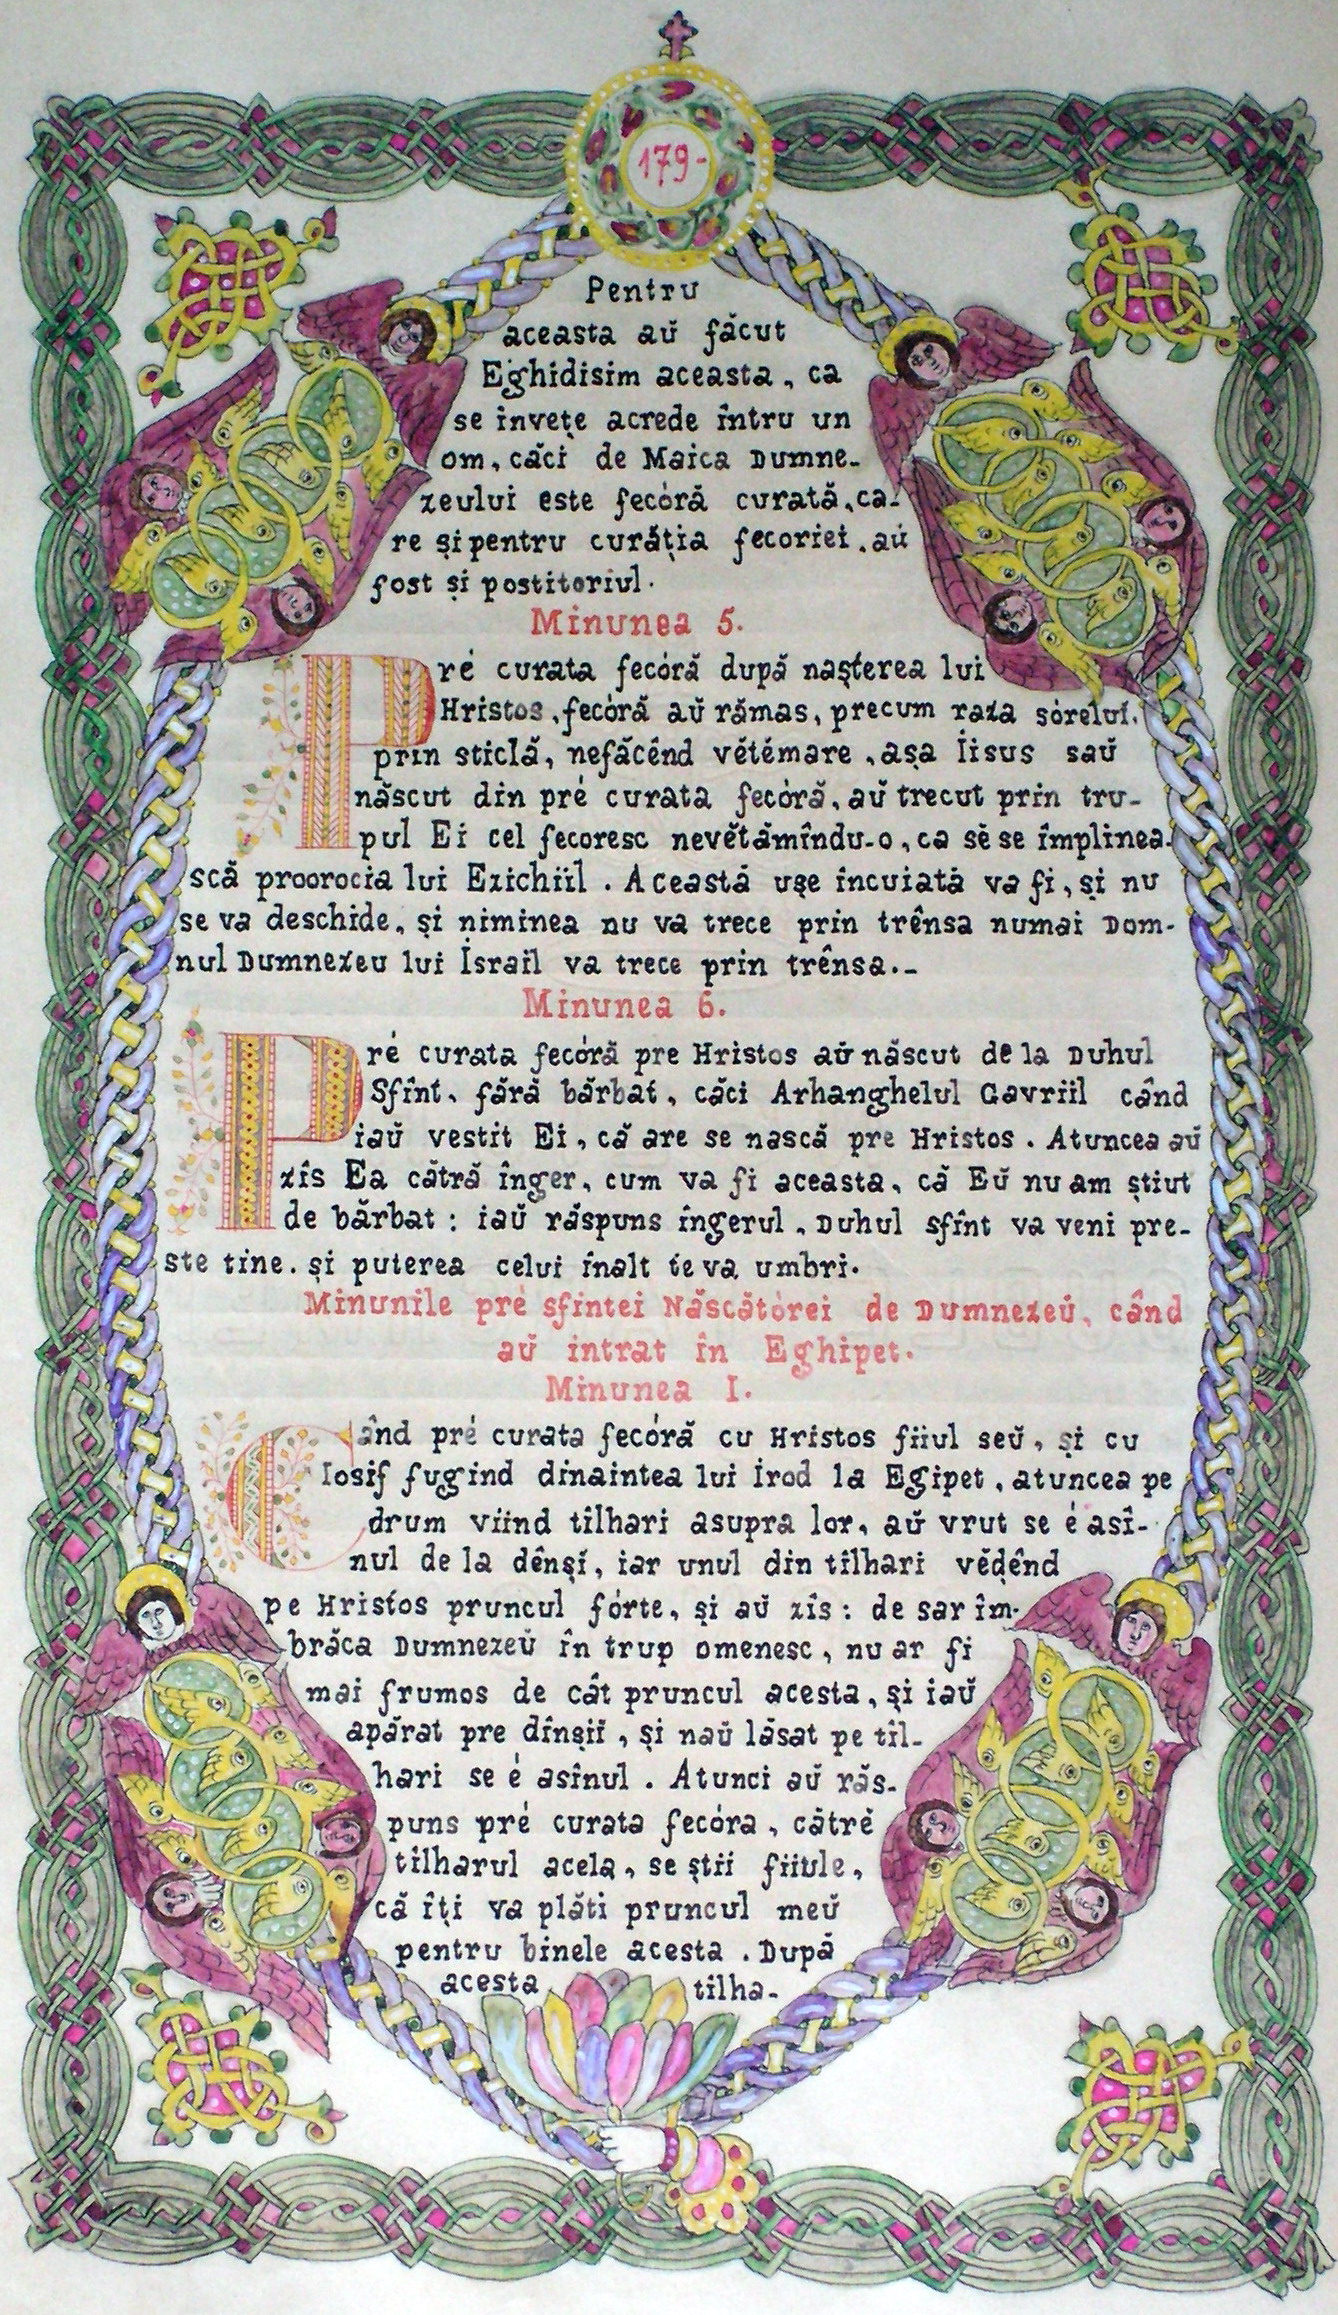 179-
Pentru
aceasta aŭ făcut
Eghidisim aceasta, ca
se învețe acrede întru un
om, căci de Maica Dumne-
zeului este fecóră curată, ca-
re și pentru curăția fecoriei, aŭ
fost și postitoriul.
Minunea 5.
Pré curata fecóră după nașterea lui
Hristos, fecóră aŭ rămas, precum raza sórelui,
prin sticlă, nefăcênd vĕtĕmare, așa Iisus saŭ
născut din pré curata fecóră, aŭ trecut prin tru-
pul Ei cel fecoresc nevĕtămîndu-o, ca sĕ se împlinea-
scă proorocia lui Ezichiil. Această ușe încuiată va fi, și nu
se va deschide, și niminea nu va trece prin trênsa numai Dom-
nul Dumnezeu lui Israil va trece prin trênsa.-
Minunea 6.
Pré curata fecóră pre Hristos aŭ născut de la Duhul
Sfînt, fără bărbat, căci Arhanghelul Gavriil când
iaŭ vestit Ei, că are se nască pre Hristos. Atuncea aŭ
zîs Ea cătră înger, cum va fi aceasta, că Eŭ nu am știut
de bărbat: iaŭ răspuns îngerul, Duhul sfînt va veni pre-
ste tine, și puterea celui înalt te va umbri.
Minunile pré sfintei Născătórei de Dumnezeŭ, când
aŭ intrat în Eghipet.
Minunea I.
Când pré curata fecóră cu Hristos fiiul seŭ, și cu
Iosif fugind dinaintea lui Irod la Egipet, atuncea pe
drum viind tîlhari asupra lor, aŭ vrut se é asî-
nul de la dênșí, iar unul din tîlhari vĕḑênd
pe Hristos pruncul fórte, și aŭ zîs: de sar îm-
brăca Dumnezeŭ în trup omenesc, nu ar fi
mai frumos de cât pruncul acesta, și iaŭ
apărat pre dînșiĭ, și naŭ lăsat pe tîl-
hari se é asînul. Atunci aŭ răs-
puns pré curata fecóra, cătrĕ
tîlharul acela, se știi fiiule,
că îți va plăti pruncul meŭ
pentru binele acesta. După
acesta tilha-